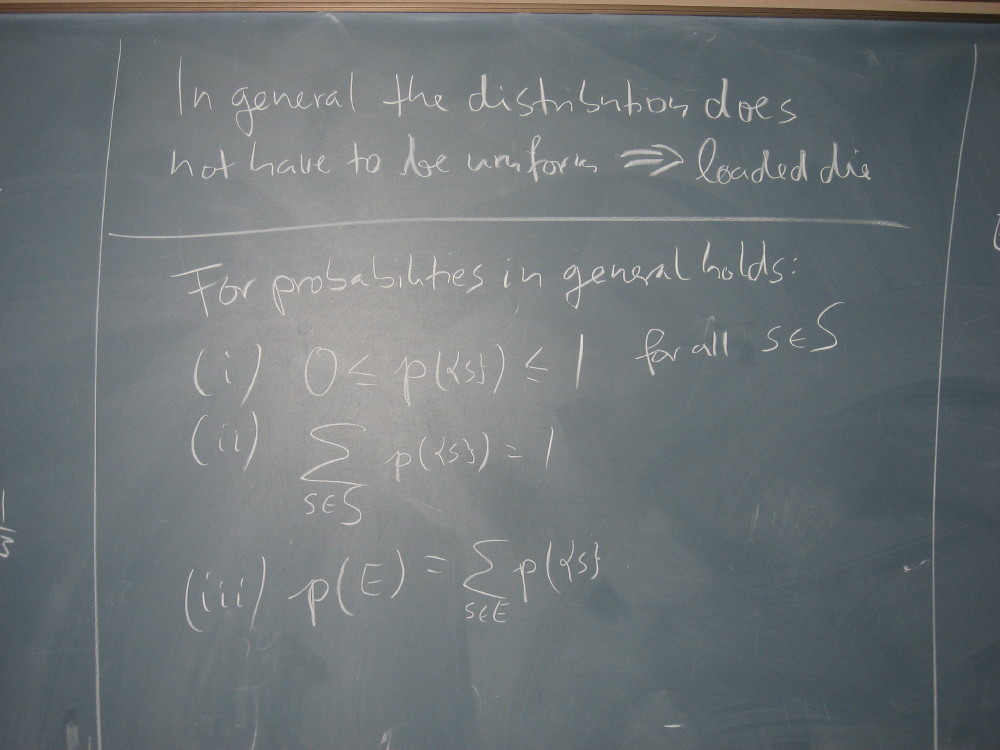 In general the distribution does
not have to be uniform ⇒ loaded die
For probabilities in general holds:
(i) 0 ≤ p({s}) ≤ 1 for all s∈S
(ii) ∑ p({s}) = 1
s∈S
(iii) p(E) = ∑ p({s}
s∈E